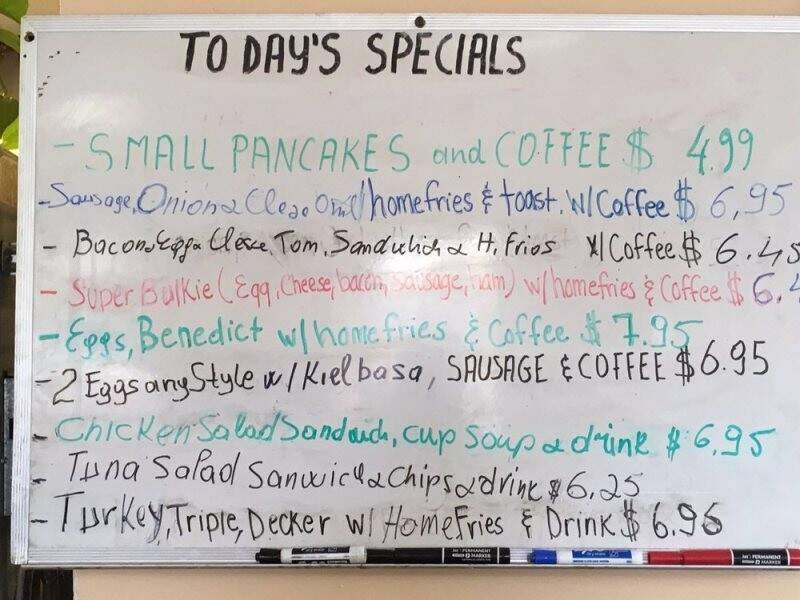 TODAY'S SPECIALS
- SMALL PANCAKES and COFFEE $ 4.99
- Sausage, Onion & w/homefries & toast. w/Coffee $ 6,95
- Bacon, Tom, & H, Fries w/Coffee $ 6.45
- Super Bulkie (Egg, Cheese, bacon, sausage, ham) w/homefries & Coffee $ 6.4
- Eggs, Benedict w/homefries & Coffee $ 7.95
- 2 Eggs any Style w/Kielbasa, SAUSAGE & COFFEE $6.95
- Chicken Salad Sandwich, cup Soup & drink $ 6,95
- Tuna Salad Sanwich & Chips & drink $ 6,25
- Turkey, Triple, Decker w/HomeFries & Drink $ 6.96
PERMANENT MARKER
PERMANENT